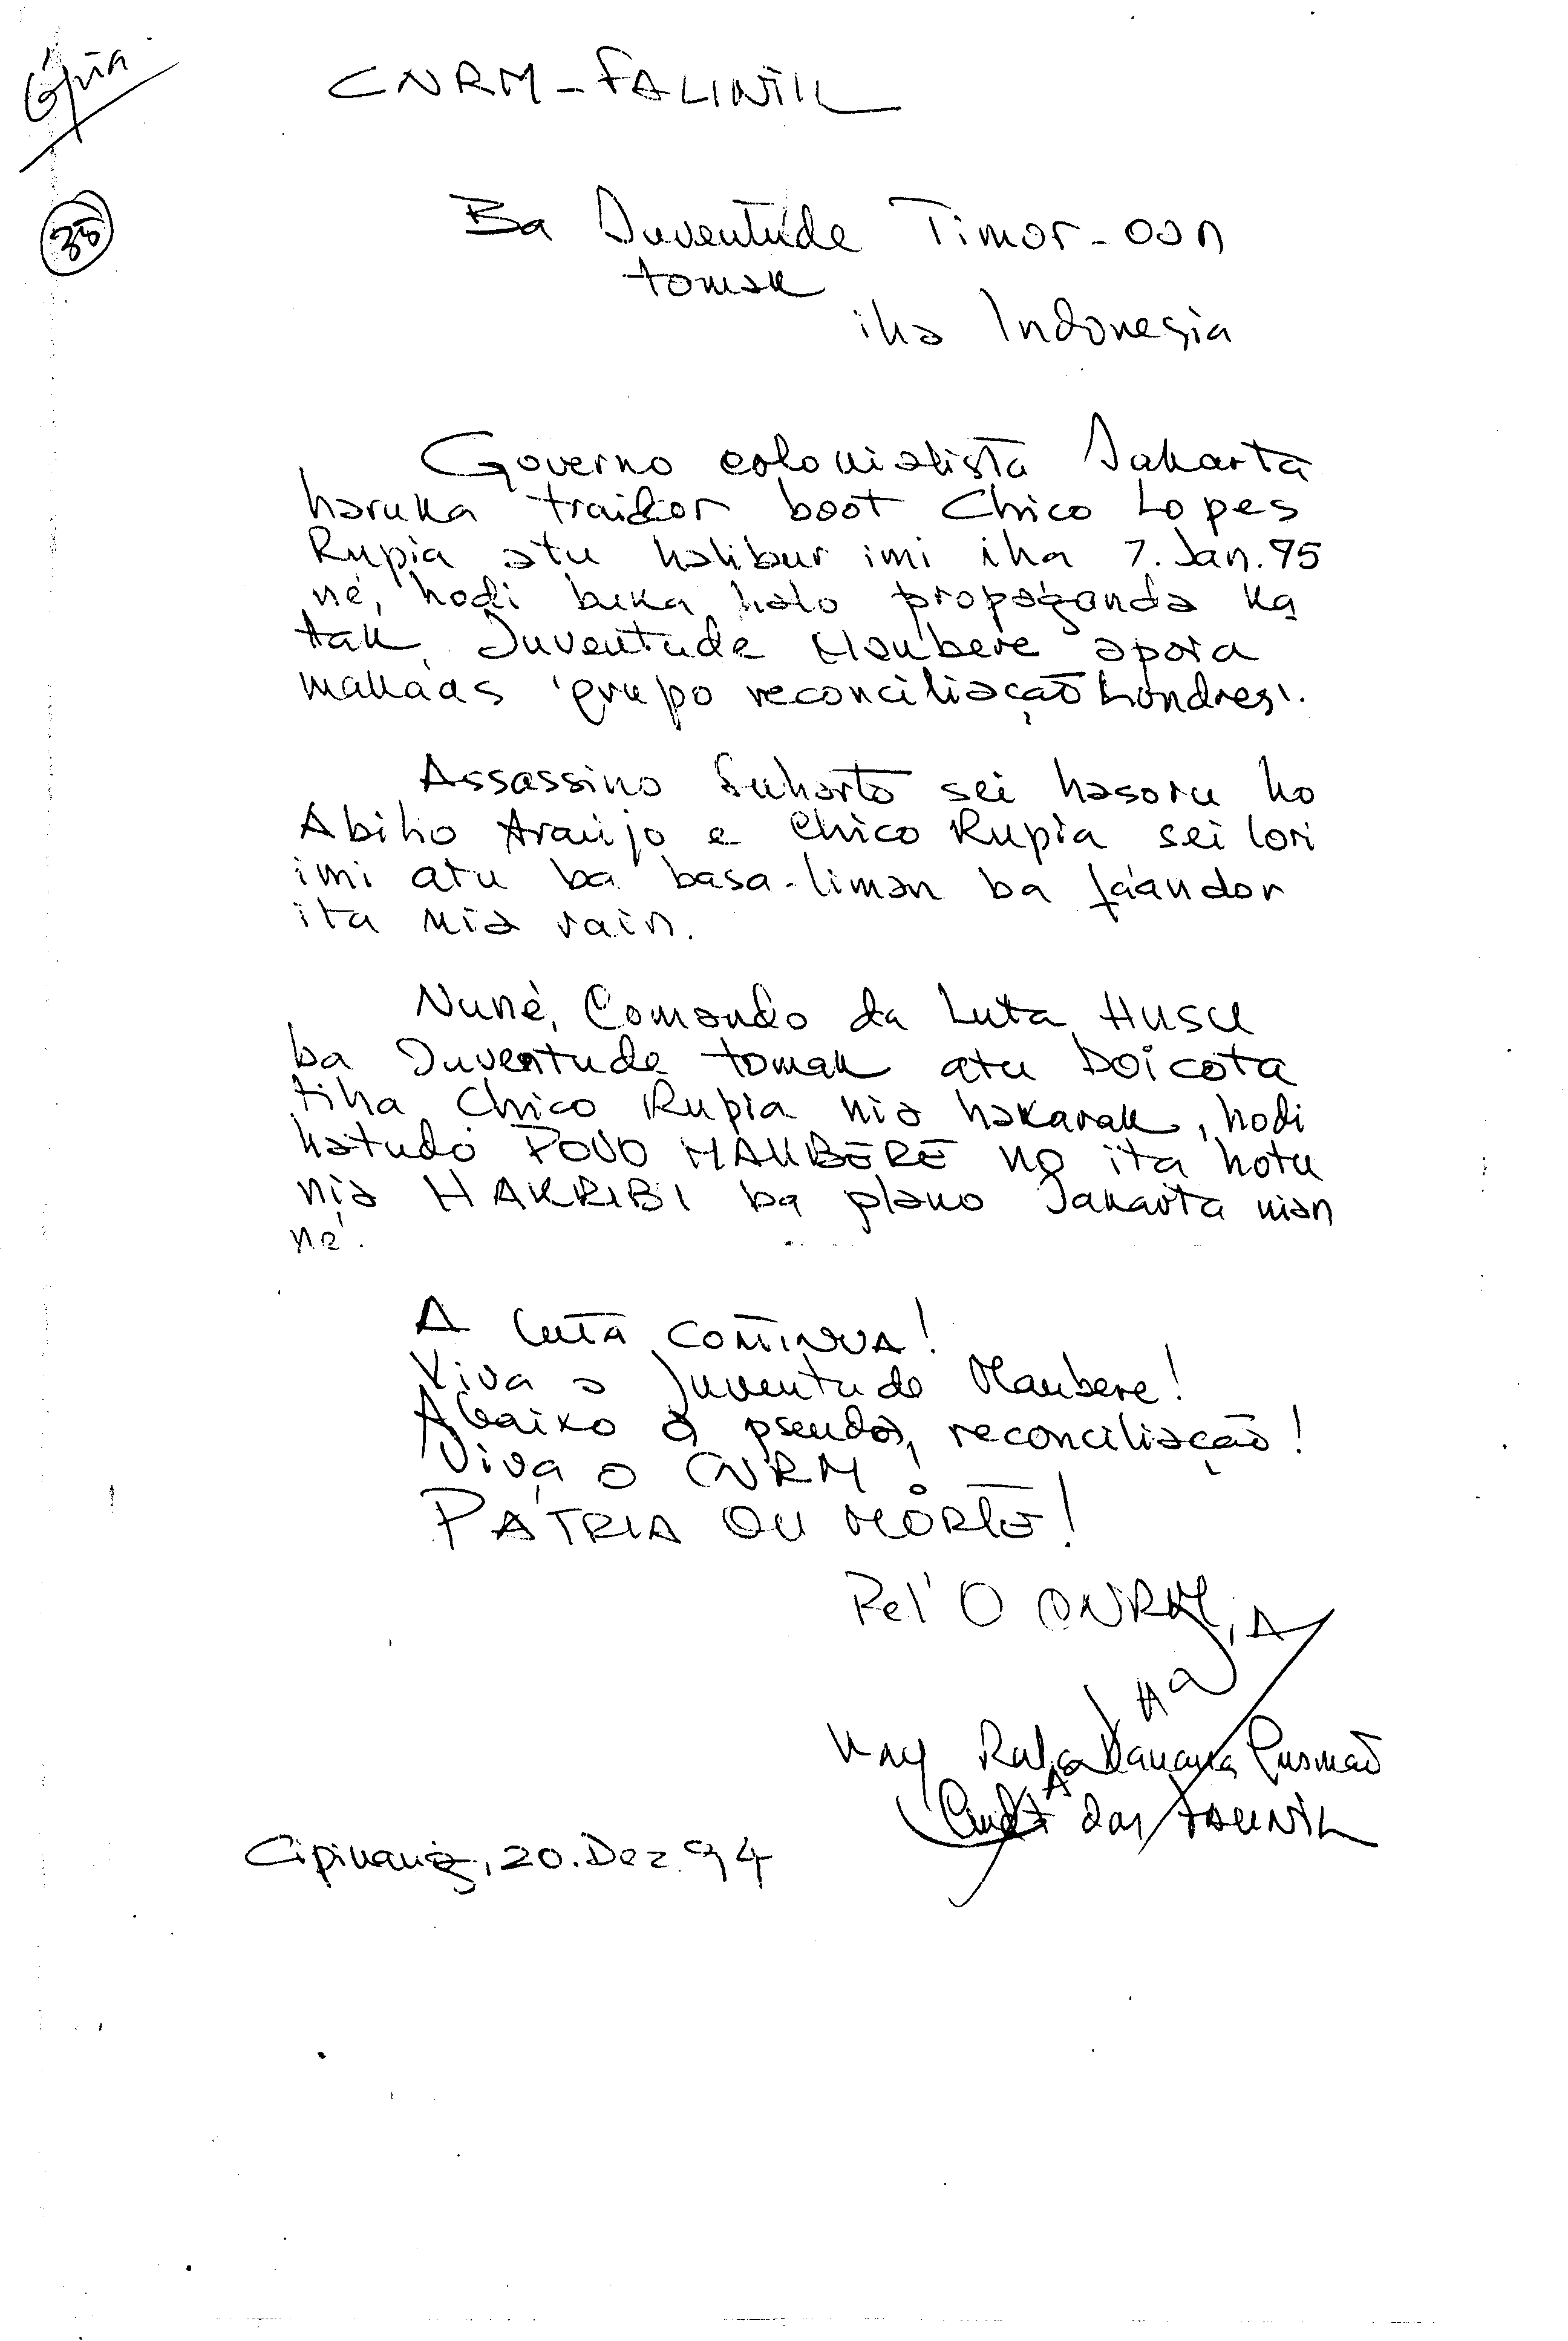 Cópia
CNRM - FALINTIL
Ba Juventude Timor-oan
tomak
iha Indonesia
Governo colonialista Jakarta
haruka traidor boot Chico Lopes
Rupia atu halibur imi iha 7. Jan. 95
né, hodi buka halo propaganda ka
tak Juventude Maubere apoia
maka'as 'grupo reconciliação Londres'.
Assassino Suharto sei hasoru ho
Abilio Araújo e Chico Rupia sei lori
imi atu ba basa-liman ba fá'andor
ita nia rain.
Nuné, Comando da Luta HUSU
ba Juventude tomak atu boicota
tiha Chico Rupia nia hakarak, hodi
hatudo POVO MAUBERE no ita hotu
nia HAKRIBI ba plano Jakarta nian
né.
A luta CONTINUA!
Viva a Juventude Maubere!
Abaixo a pseudo, reconciliação!
Viva o CNRM!
PÁTRIA OU MORTE!
Pel'O CNRM,
Kay Rala Xanana Gusmão
Cmdt das FALINTIL
Cipinang, 20. Dez. 94